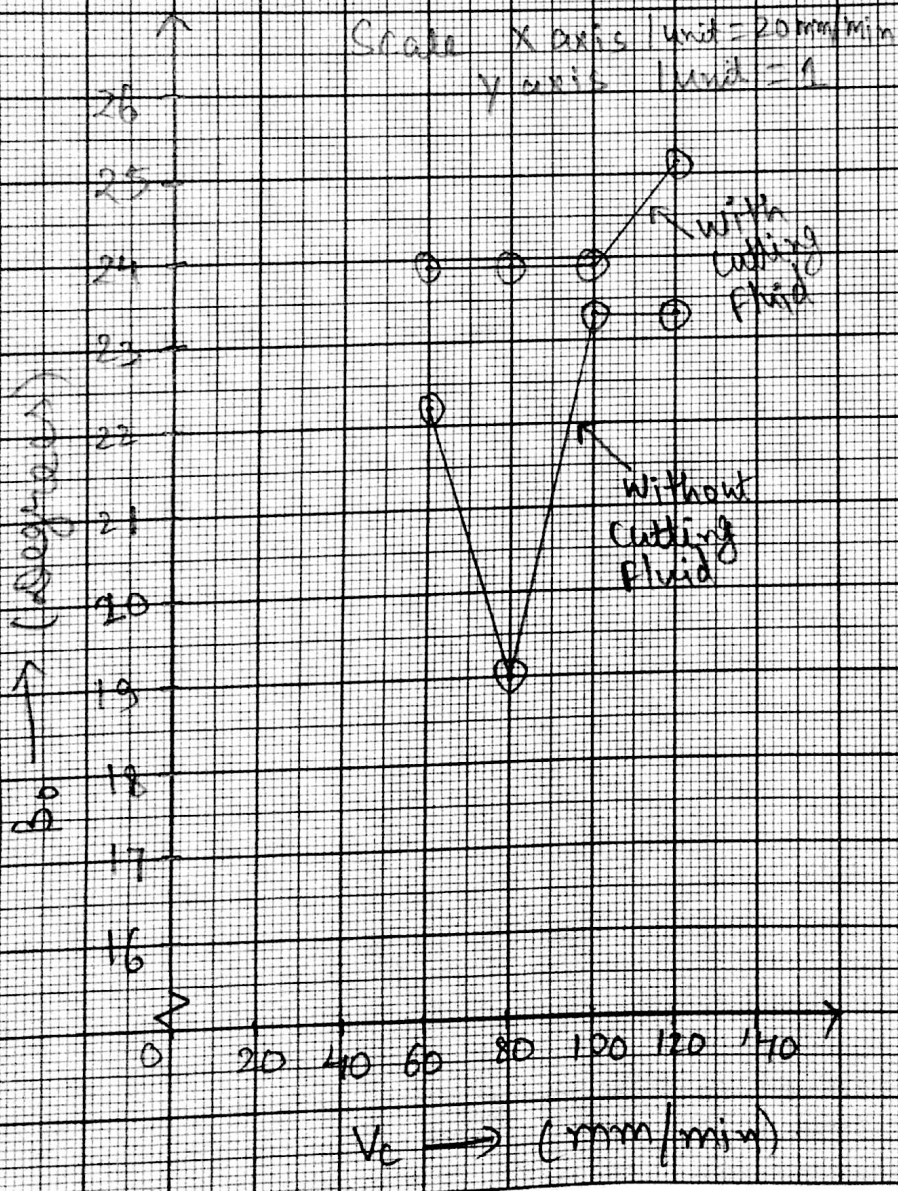 Scale X axis 1 unit = 20 mm/min
Y axis 1 unit = 1
26
25
24
23
22
21
20
19
18
17
16
With
Cutting
Fluid
Without
Cutting
Fluid
(Degrees)
0 20 40 60 80 100 120 140
Vc → (mm/min)